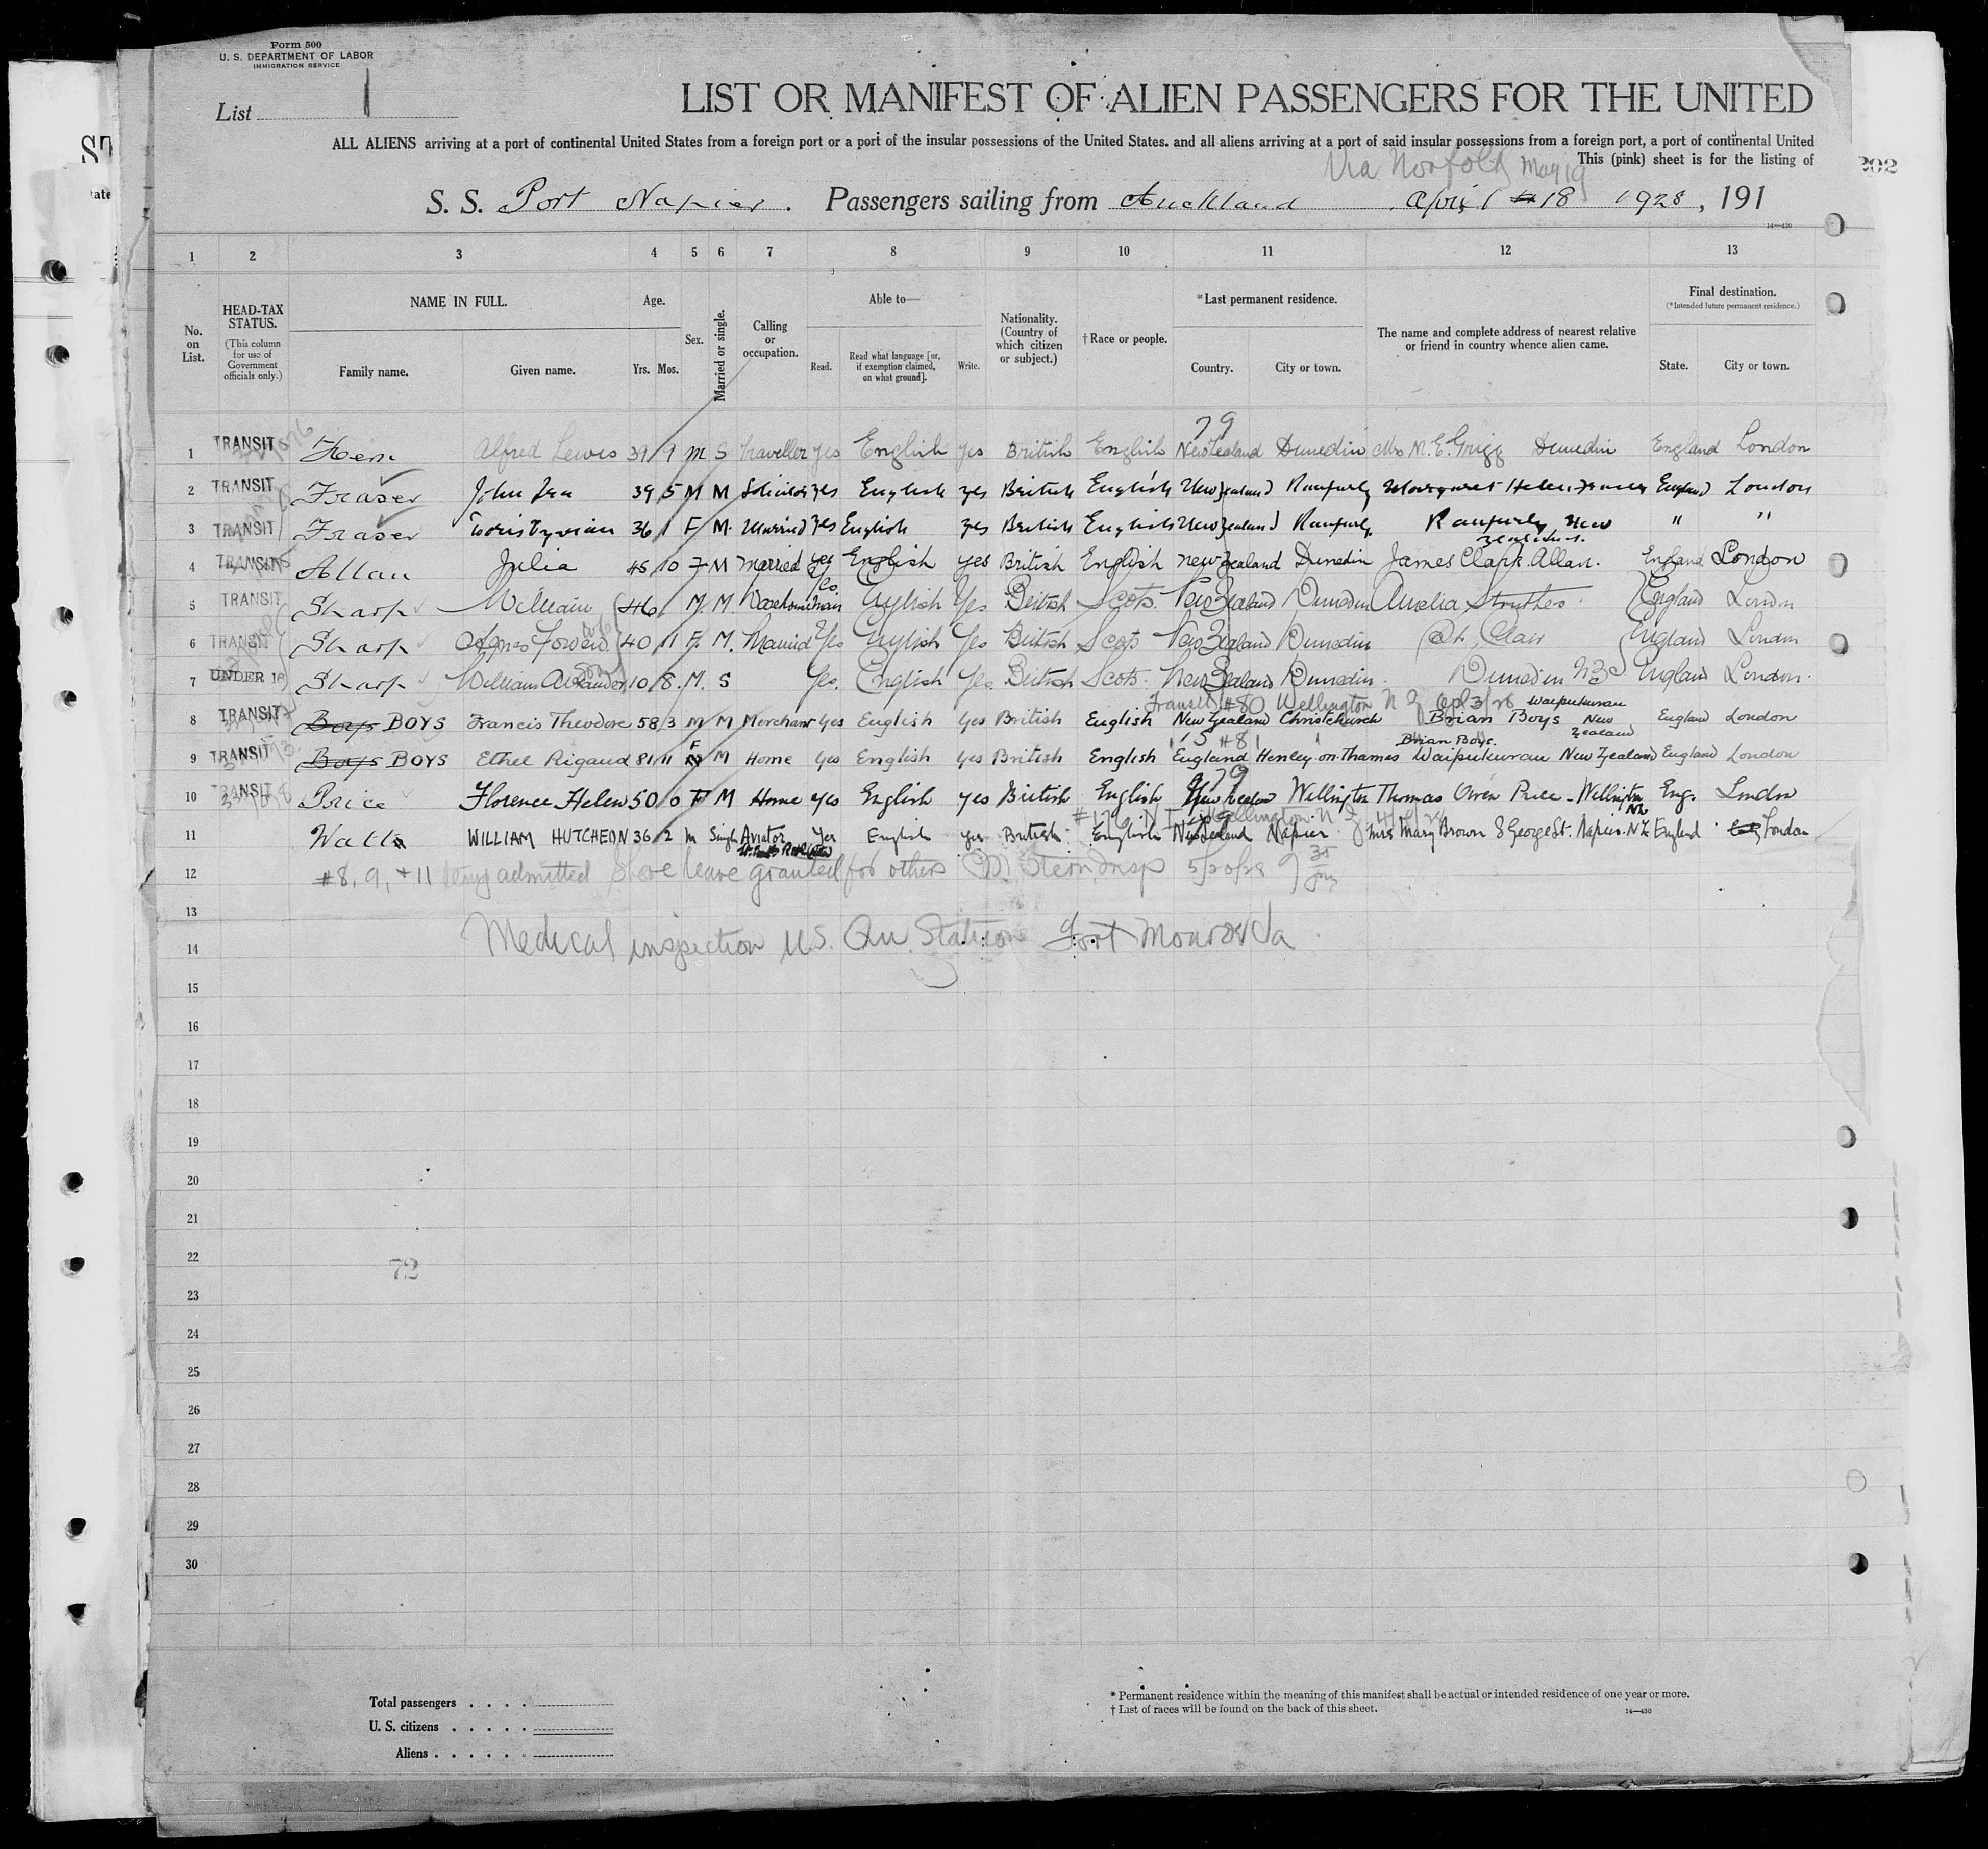 Form 500
U. S. DEPARTMENT OF LABOR
IMMIGRATION SERVICE
List 1
LIST OR MANIFEST OF ALIEN PASSENGERS FOR THE UNITED
ALL ALIENS arriving at a port of continental United States from a foreign port or a port of the insular possessions of the United States. and all aliens arriving at a port of said insular possessions from a foreign port, a port of continental United
Via Norfolk May 19
This (pink) sheet is for the listing of
S. S. Port Napier. Passengers sailing from Auckland April 18 1928, 191
14—430
1 2 3 4 5 6 7 8 9 10 11 12 13
No. on List.
HEAD-TAX STATUS.
(This column for use of Government officials only.)
NAME IN FULL.
Family name. Given name.
Age.
Yrs. Mos.
Sex.
Married or single.
Calling or occupation.
Able to—
Read. Read what language [or, if exemption claimed, on what ground]. Write.
Nationality. (Country of which citizen or subject.)
†Race or people.
*Last permanent residence.
Country. City or town.
The name and complete address of nearest relative or friend in country whence alien came.
Final destination.
(*Intended future permanent residence.)
State. City or town.
79
1 TRANSIT Alfred Lewis 39 M S Traveller yes English yes British English New Zealand Dunedin Mrs N. E. Grigg Dunedin England London
2 TRANSIT Fraser John 39 5 M M Solicitor yes English yes British English New Zealand Ranfurly Margaret Helen Fraser England London
3 TRANSIT Fraser 36 1 F M. Married yes English yes British English New Zealand Ranfurly Ranfurly New Zealand " "
4 TRANSIT Allan Julia 45 10 F M Married yes English yes British English New Zealand Dunedin James Clark Allan. England London
5 TRANSIT Sharp William 46 M. M. Yes English Yes British Scots. New Zealand Dunedin Amelia Struthers England London
6 TRANSIT Sharp Agnes 40 11 F. M. Married Yes English Yes British Scots New Zealand Dunedin St. Clair England London
7 UNDER 16 Sharp William Alexander 10 8. M. S Yes. English Yes. British Scots. New Zealand Dunedin. Dunedin NZ England London.
Transit #80 Wellington N Z
8 TRANSIT Boys BOYS Francis Theodore 58 3 M M Merchant yes English yes British English New Zealand Christchurch Brian Boys Waipukurau New Zealand England London
#81
9 TRANSIT Boys BOYS Ethel Rigaud 11 F M Home yes English yes British English England Henley-on-Thames Brian Boys. Waipukurau New Zealand England London
79
10 TRANSIT Price Florence Helen 50 0 F M Home yes English yes British English New Zealand Wellington Thomas Owen Price - Wellington NZ Eng. London
11 WILLIAM HUTCHEON 36 2 M Single Aviator yes English yes British English New Zealand Napier Mrs Mary Brown 8 George St. Napier. NZ England London
12 #8, 9, + 11 admitted Shore leave granted for others Stern Insp 5/20/28
13
14 Medical inspection U.S. Qu. Station Fort Monroe Va
15
16
17
18
19
20
21
22
72
23
24
25
26
27
28
29
30
Total passengers . . . .
U. S. citizens . . . . .
Aliens . . . . . .
* Permanent residence within the meaning of this manifest shall be actual or intended residence of one year or more.
† List of races will be found on the back of this sheet.
14—430